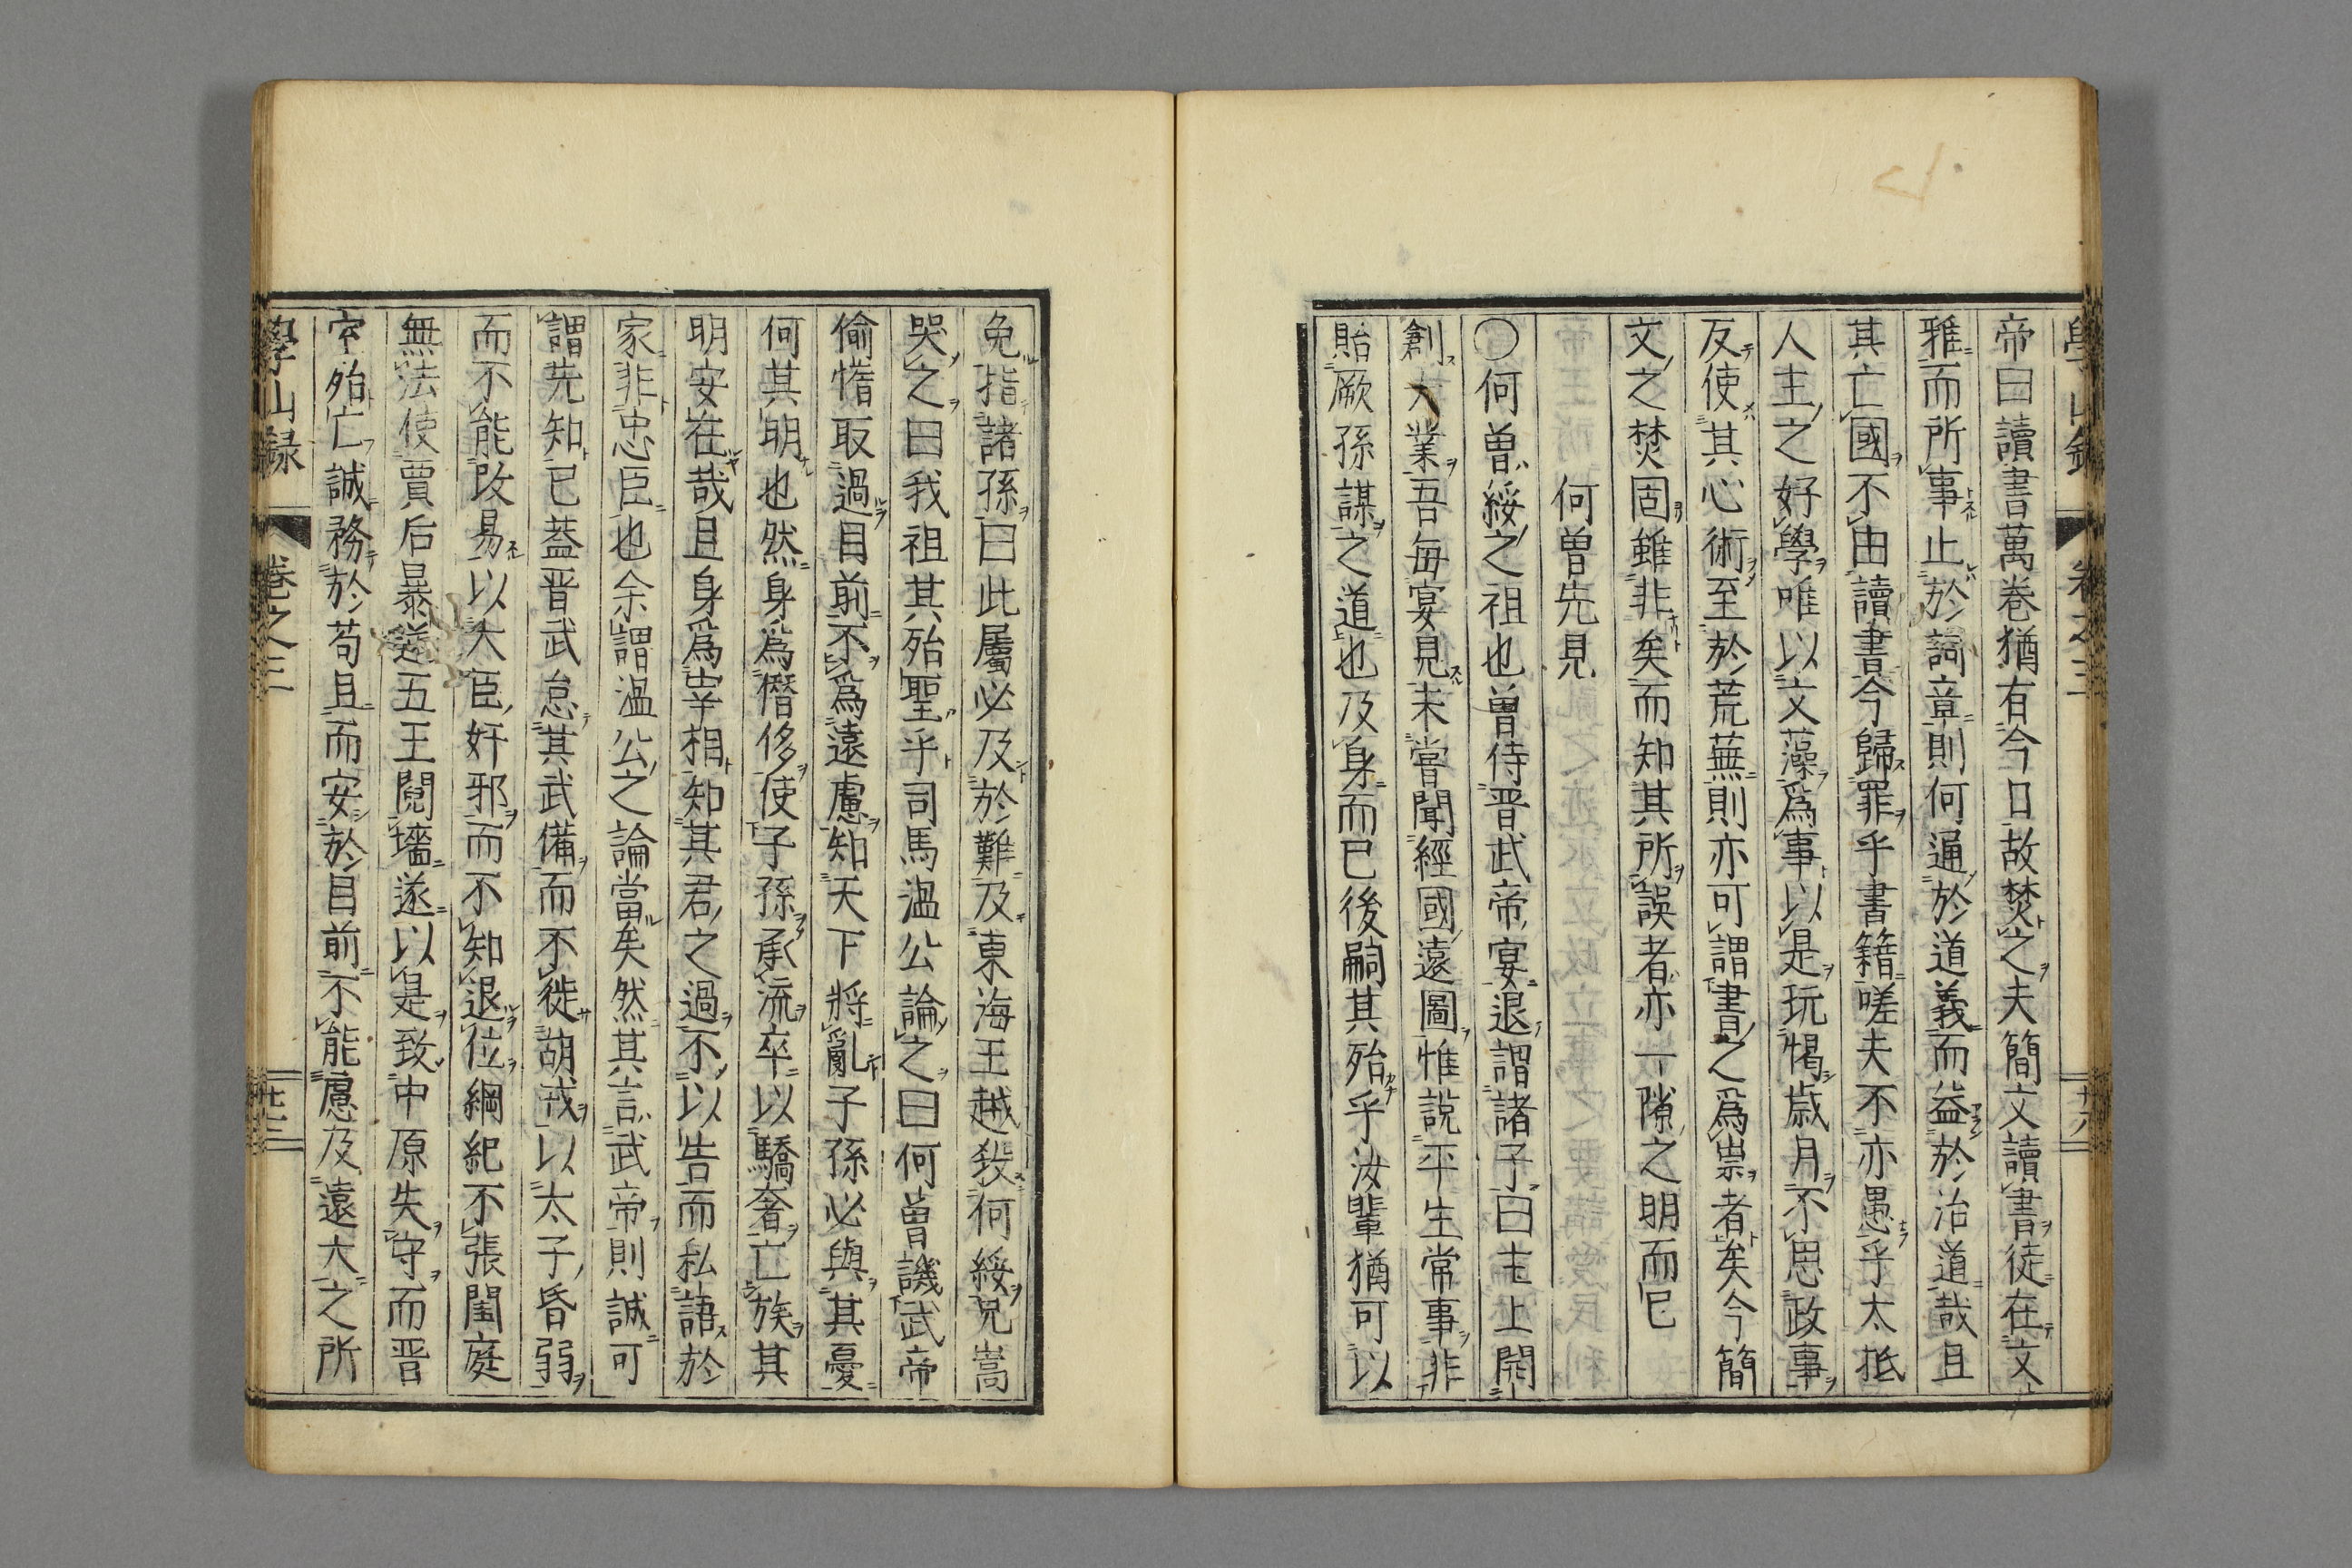 帝曰讀書萬卷猶有今日故焚之夫簡文讀書徒在文
雅而所事止於詞章則何通於道義而益於治道哉且
其亡國不由讀書今歸罪乎書籍嗟夫不亦愚乎太抵
人主之好學唯以文藻爲事以是玩愒歳月不思政事
反使其心術至於荒蕪則亦可謂書之爲祟者矣今簡
文之焚固雖非矣而知其所誤者亦一隙之明而已
何曽先見
〇何曽綏之祖也曽侍晋武帝宴退謂諸子曰主上開
創大業吾毎宴見未嘗聞經國遠圖惟説平生常事非
貽厥孫謀之道也及身而已後嗣其殆乎汝輩猶可以
免指諸孫曰此屬必及於難及東海王越殺何綏兄嵩
哭之曰我祖其殆聖乎司馬温公論之曰何曽譏武帝
偷惰取過目前不爲遠慮知天下將亂子孫必與其憂
何其明也然身爲僭侈使子孫承流卒以驕奢亡族其
明安在哉且身爲宰相知其君之過不以告而私語於
家非忠臣也余謂温公之論當矣然其言武帝則誠可
謂先知已葢晋武怠其武備而不徙胡戎以太子昏弱
而不能改易以大臣奸邪而不知退位綱紀不張閨庭
無法使賈后暴逆五王鬩墻遂以是致中原失守而晋
室殆亡誠務於苟且而安於目前不能慮及遠大之所
學山録
卷之三